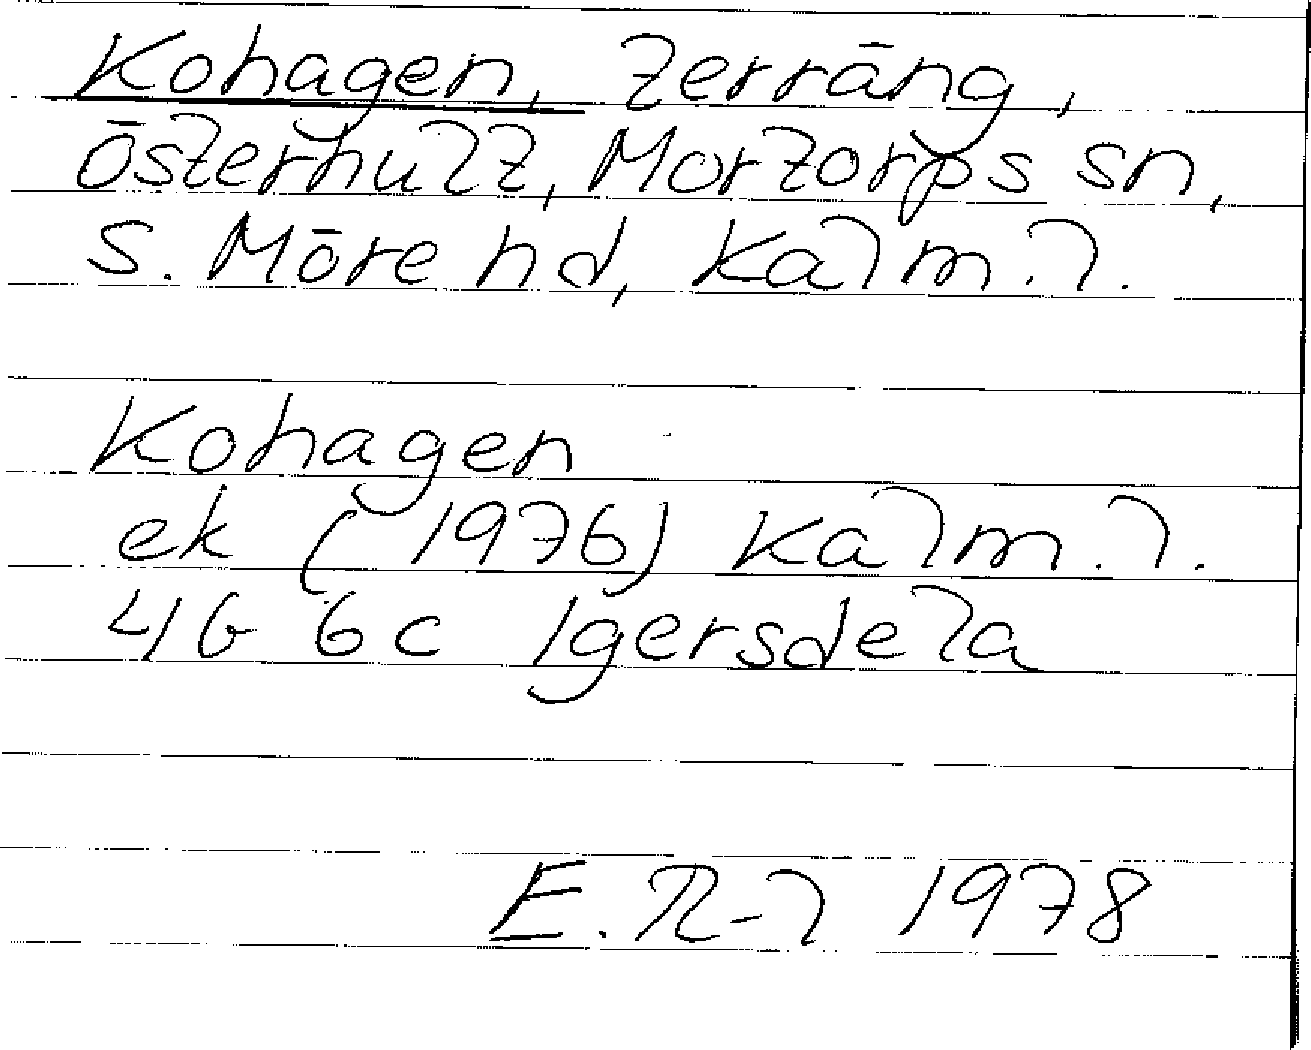 Kohagen, terräng,
Österhult, Mortorps sn,
S. Möre hd, Kalm. l.
Kohagen
ek (1976) Kalm. l.
4G 6c Igersdela
E. R-l 1978